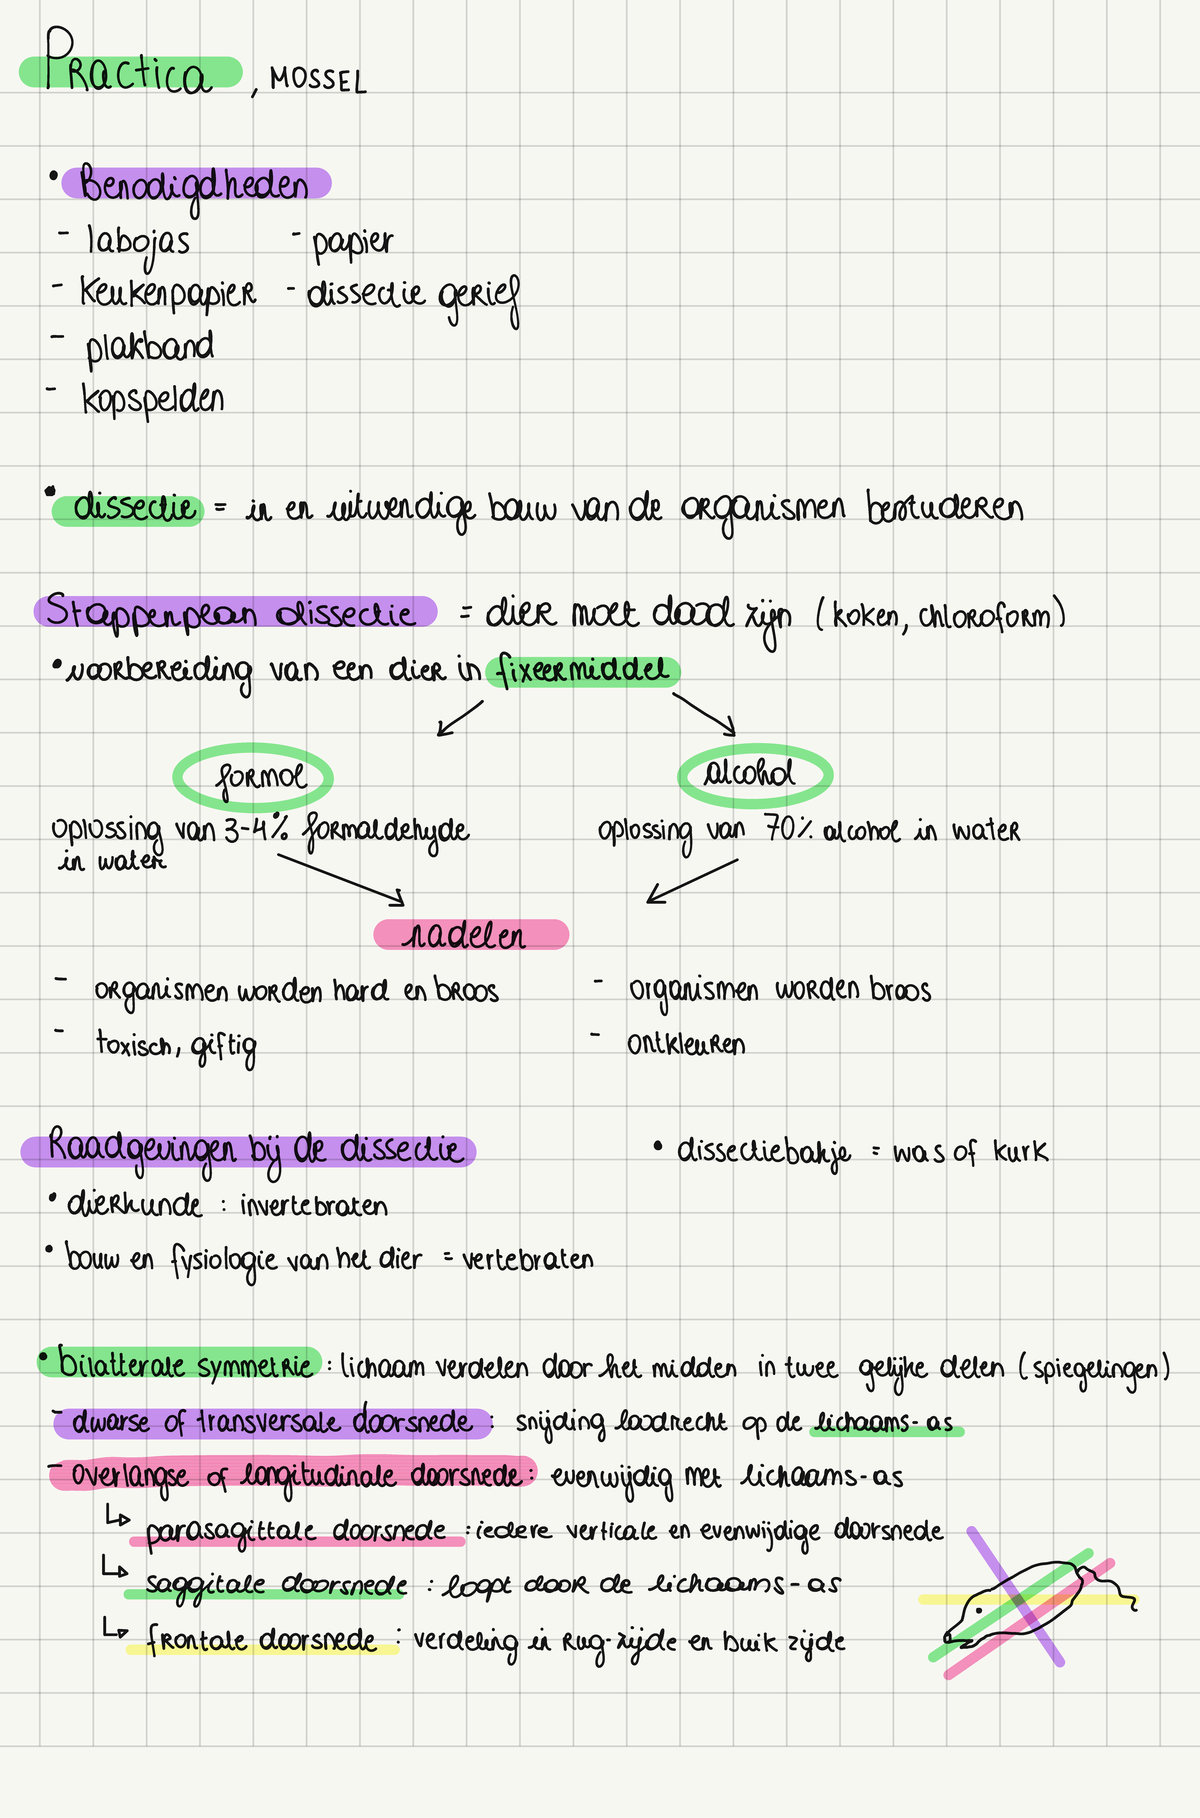 Practica, MOSSEL
• Benodigdheden
- labojas - papier
- keukenpapier - dissectie gerief
- plakband
- kopspelden
• dissectie = in en uitwendige bouw van de organismen bestuderen
Stappenplan dissectie = dier moet dood zijn (koken, chloroform)
• voorbereiding van een dier in fixeermiddel
formol alcohol
oplossing van 3-4% formaldehyde oplossing van 70% alcohol in water
in water
nadelen
- organismen worden hard en broos - organismen worden broos
- toxisch, giftig - ontkleuren
Raadgevingen bij de dissectie • dissectiebakje = was of kurk
• dierkunde : invertebraten
• bouw en fysiologie van het dier = vertebraten
• bilatterale symmetrie : lichaam verdelen door het midden in twee gelijke delen (spiegelingen)
- dwarse of transversale doorsnede : snijding loodrecht op de lichaams-as
- overlangse of longitudinale doorsnede : evenwijdig met lichaams-as
↳ parasagittale doorsnede : iedere verticale en evenwijdige doorsnede
↳ saggitale doorsnede : loopt door de lichaams-as
↳ frontale doorsnede : verdeling in rug-zijde en buik zijde